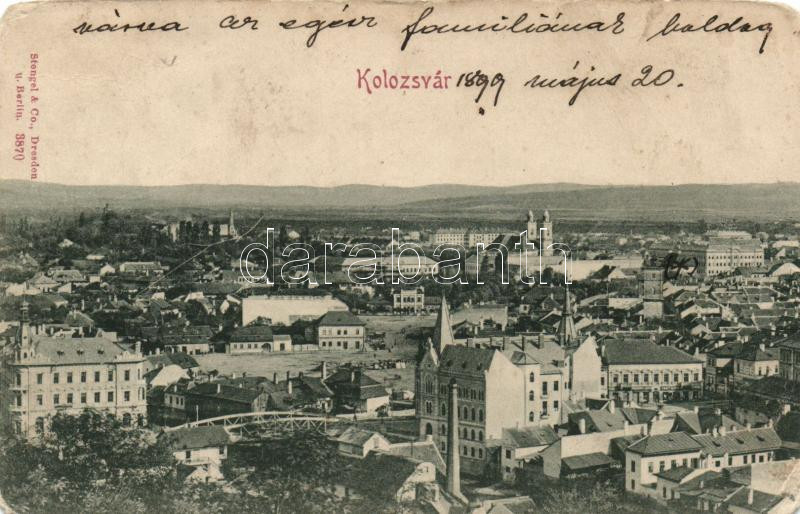 várva az egész familiának boldog
Kolozsvár 1899 május 20.
Stengel & Co., Dresden
u. Berlin. 3870
darabanth